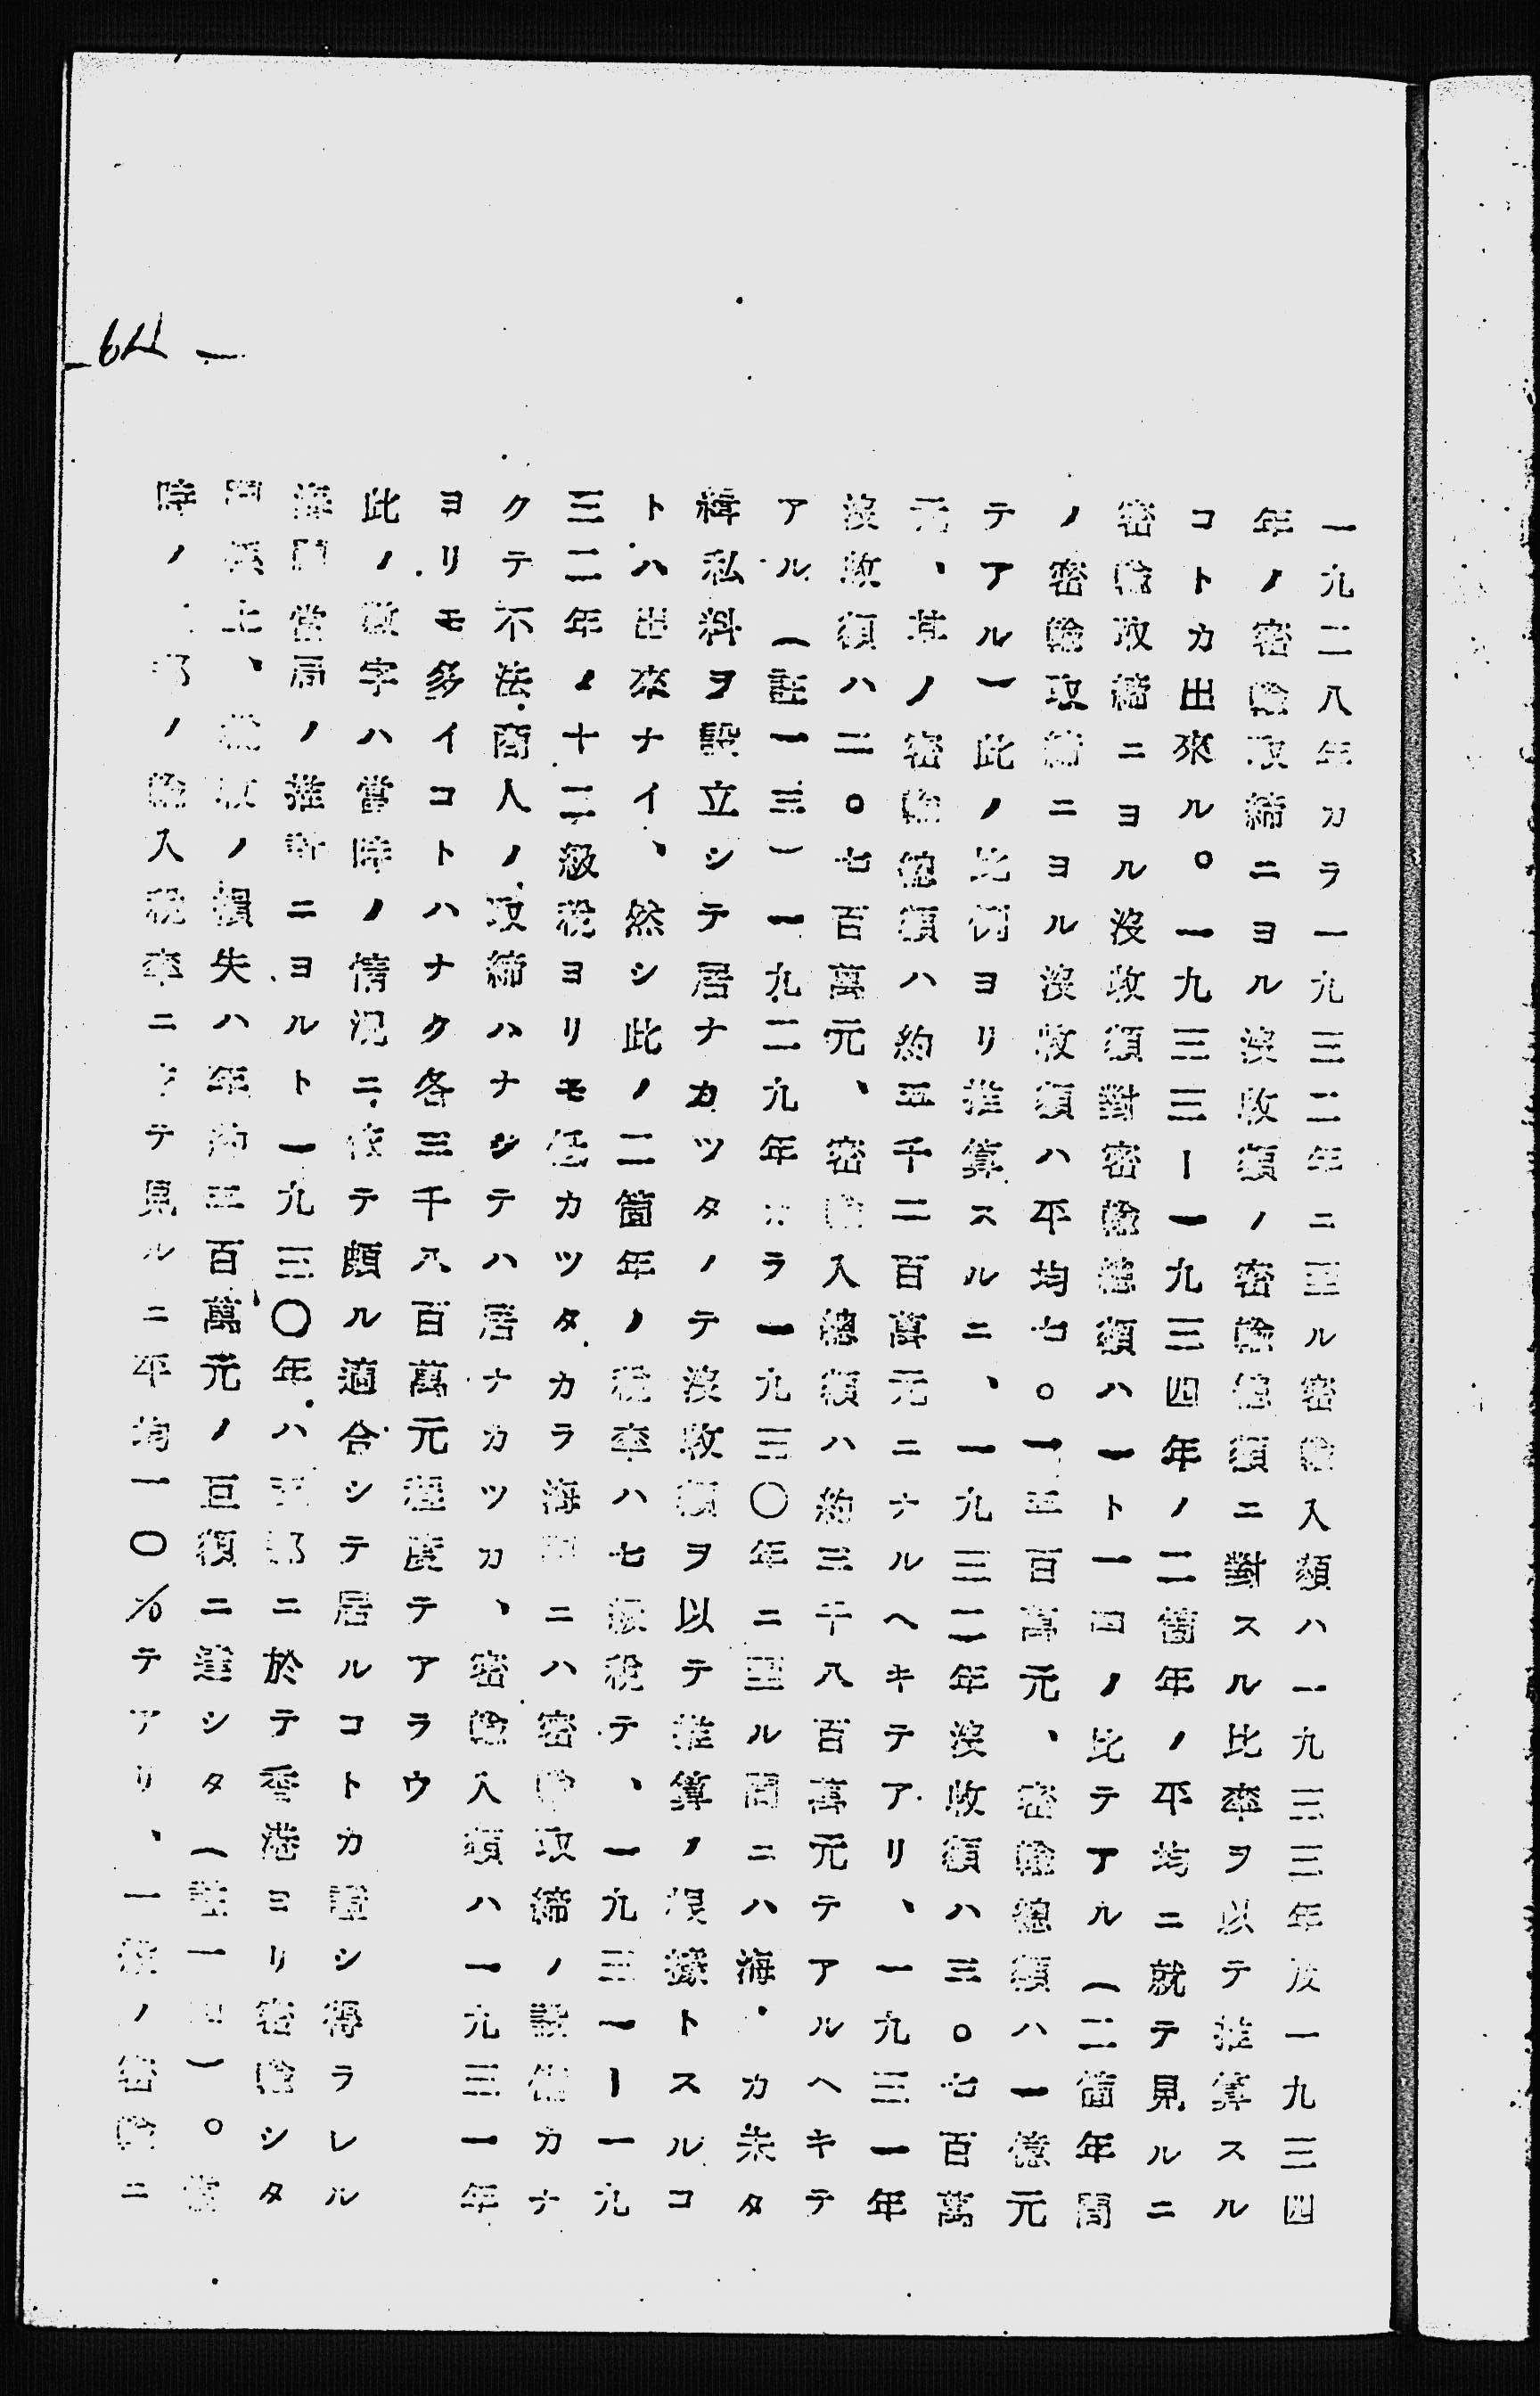 一九二八年カラ一九三二年ニ至ル密輸入額ハ一九三三年及一九三四
年ノ密輸取締ニヨル沒收額ノ密輸總額ニ對スル比率ヲ以テ推算スル
コトカ出來ル。一九三三ー一九三四年ノ二箇年ノ平均ニ就テ見ルニ
密輸取締ニヨル沒收額對密輸總額ハ一ト一四ノ比テアル(二箇年間
ノ密輸取締ニヨル沒收額ハ平均七。一五百萬元、密輸總額ハ一億元
テアル一此ノ比例ヨリ推算スルニ、一九三二年沒收額ハ三。七百萬
元、其ノ密輸總額ハ約五千二百萬元ニナルヘキテアリ、一九三一年
沒收額ハ二。七百萬元、密輸入總額ハ約三千八百萬元テアルヘキテ
アル(註一三)一九二九年カラ一九三〇年ニ至ル間ニハ海カ未タ
緝私科ヲ設立シテ居ナカツタノテ沒收額ヲ以テ推算ノ根據トスルコ
トハ出來ナイ、然シ此ノ二箇年ノ稅率ハ七級稅テ、一九三一ー一九
三二年ノ十二級稅ヨリモ低カツタカラ海關ニハ密輸取締ノ設備カナ
クテ不法商人ノ取締ハナシテハ居ナカツカ、密輸入額ハ一九三一年
ヨリモ多イコトハナク各三千八百萬元程度テアラウ
此ノ數字ハ當時ノ情況ニ依テ頗ル適合シテ居ルコトカ證シ得ラレル
海關當局ノ推斷ニヨルト一九三〇年ハ部ニ於テ香港ヨリ密輸シタ
關係上、稅收ノ損失ハ年約五百萬元ノ巨額ニ達シタ(註一四)。當
時ノ部ノ輸入稅率ニテ見ルニ平均一〇%テアリ、一般ノ密輸ニ
64